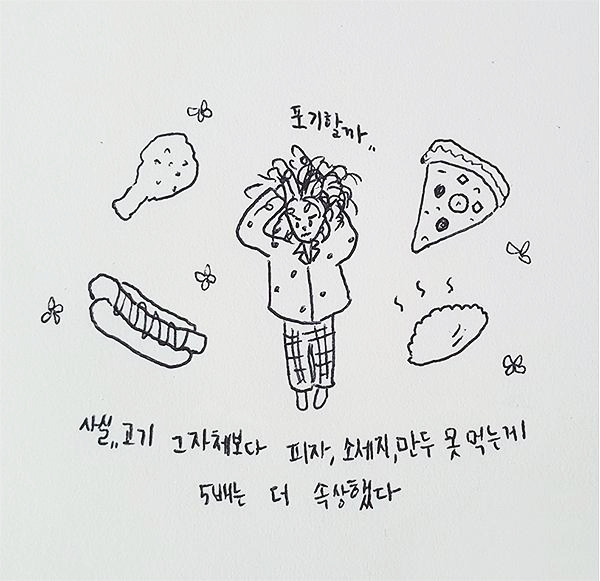 포기할까,,
사실,, 고기 그 자체보다 피자, 소세지, 만두 못 먹는게
5배는 더 속상했다